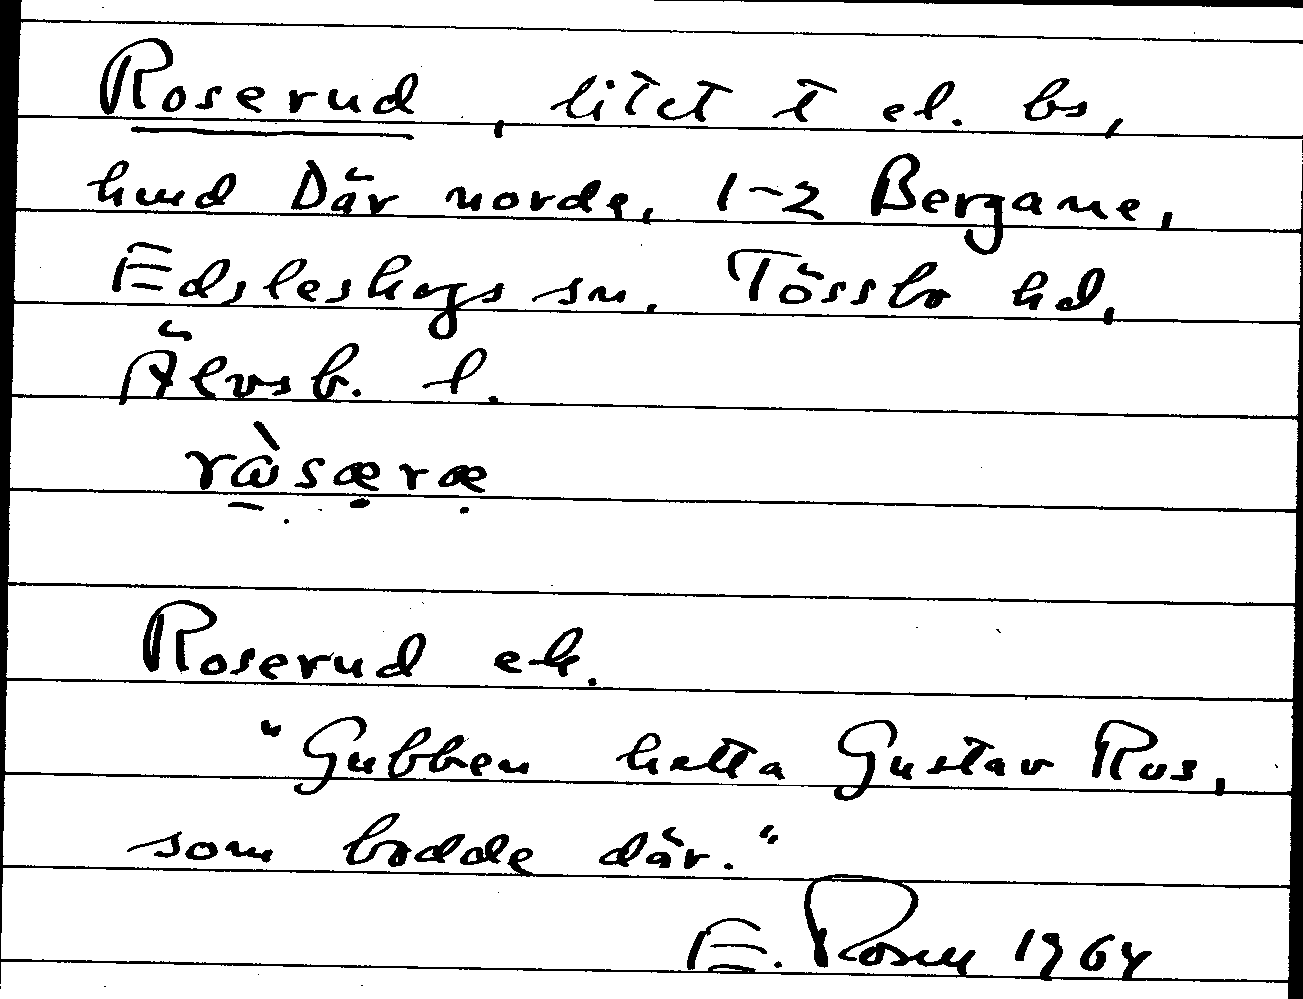 Roserud, litet t el. bs,
hmd Där norde, 1-2 Bergane,
Edsleskogs sn. Tössbo hd,
Älvsb. l.
Roserud ek.
"Gubben hetta Gustav Ros,
som bodde där."
E. Rosell 1964